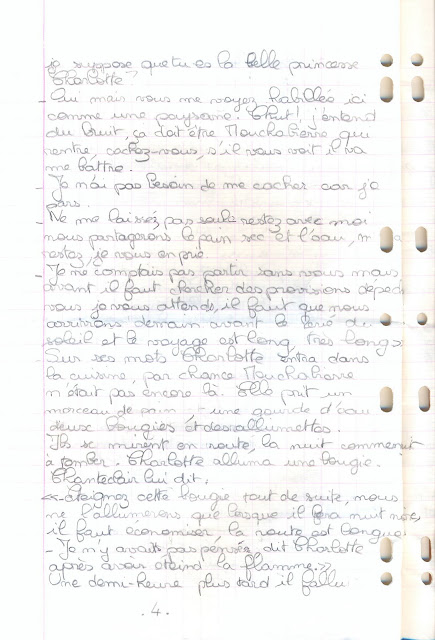 je suppose que tu es la belle princesse
Charlotte?
- Oui mais vous me voyez habillée ici
comme une paysane. Chut! j'entend
du bruit, ça doit être Mouchabierre qui
rentre, cachez-vous, s'il vous voit il va
me battre.
- Je n'ai pas besoin de me cacher car je
pars.
- Ne me laissez pas seule restez avec moi
nous partagerons le pain sec et l'eau,
restez, je vous en prie.
- Je ne comptais pas partir sans vous mais
avant il faut chercher des provisions
vous je vous attends, il faut que nous
arrivions demain avant le levé du
soleil et le voyage est long, très long >>
Sur ses mots Charlotte entra dans
la cuisine, par chance Mouchabierre
n'était pas encore là. Elle prit un
morceau de pain une gourde d'eau
deux bougies et des allumettes.
Ils se mirent en route, la nuit commençait
à tomber. Charlotte alluma une bougie.
Chanteclair lui dit,
<<- Éteignez cette bougie tout de suite, nous
ne l'allumerons que lorsque il fera nuit noire,
il faut économiser, la route est longue
- Je n'y avait pas pensée, dit Charlotte
après avoir éteind la flamme.>>
Une demi-heure plus tard il fallu
. 4 .